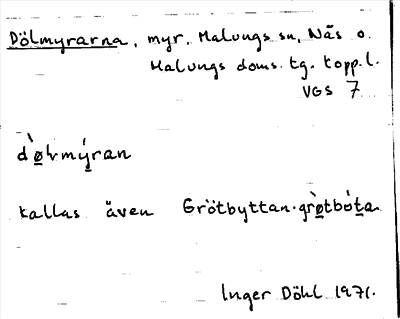 Dölmyrarna, myr, Malungs sn, Näs o.
Malungs doms. tg. Kopp. l.
VGS 7
dø̀lmýran
kallas även Grötbyttan. grø̀tbóta
Inger Döhl 1971.